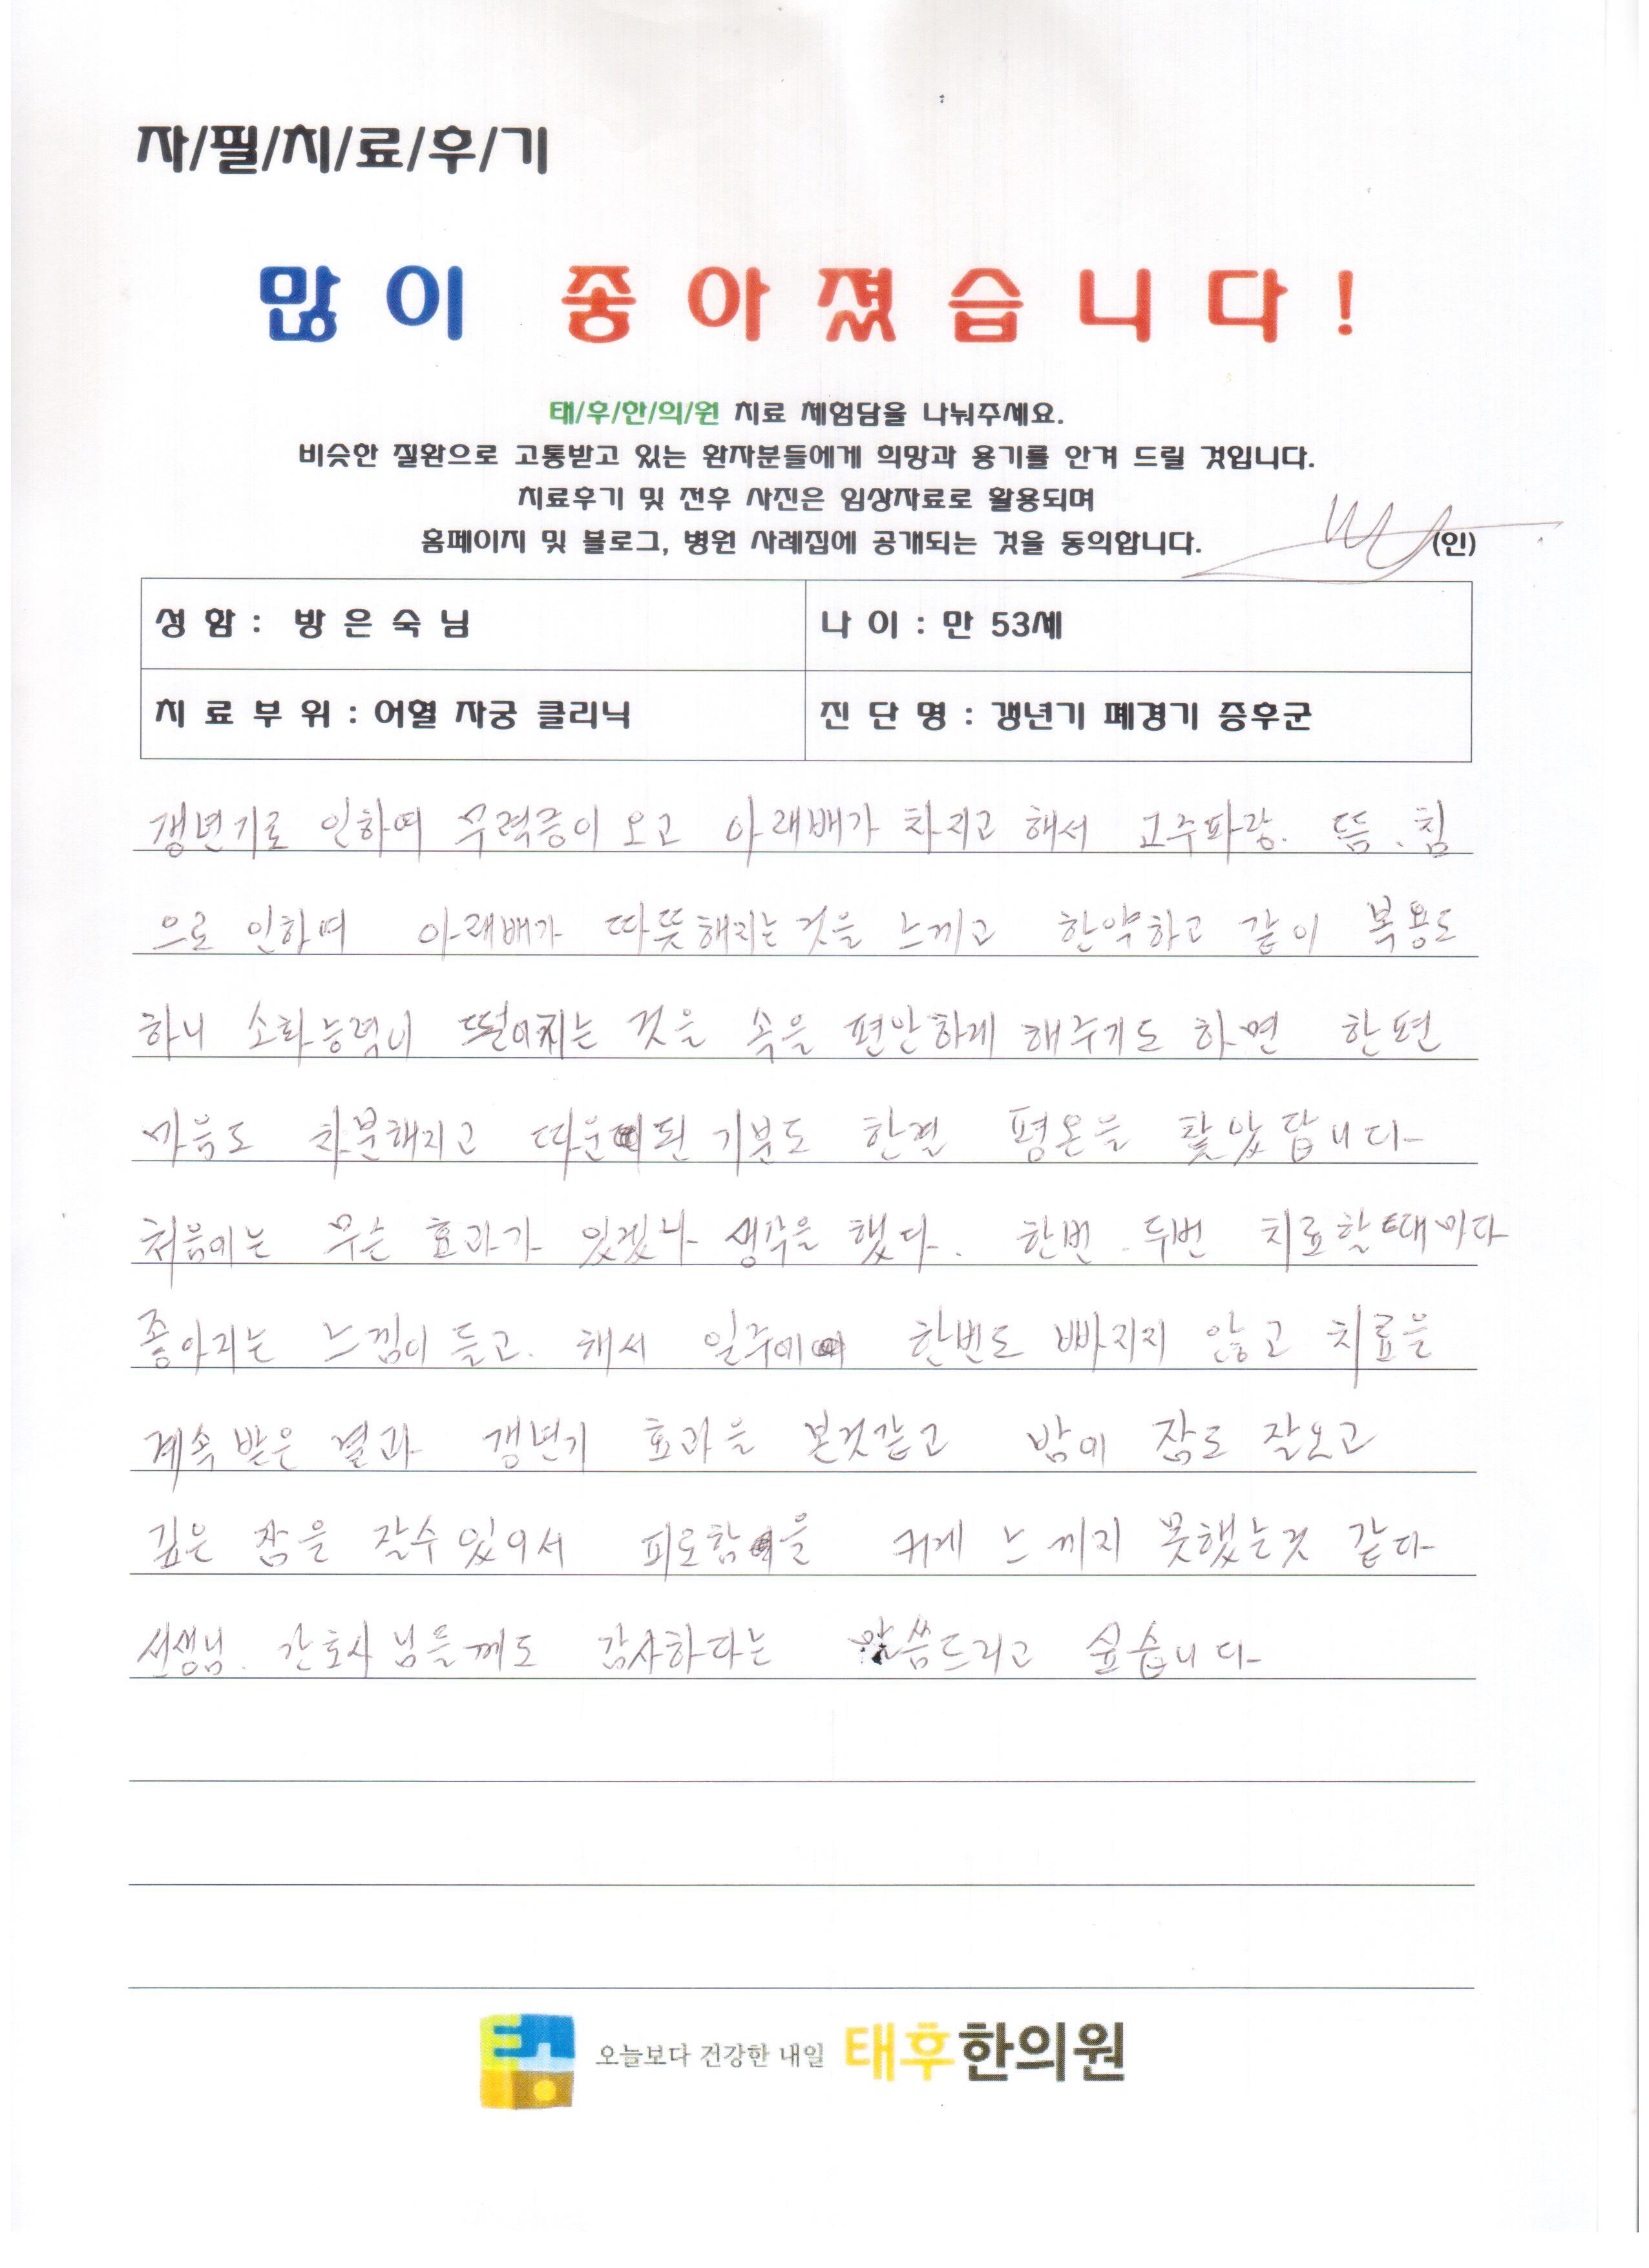 자/필/치/료/후/기
많이 좋아졌습니다!
태/후/한/의/원 치료 체험담을 나눠주세요.
비슷한 질환으로 고통받고 있는 환자분들에게 희망과 용기를 안겨 드릴 것입니다.
치료후기 및 전후 사진은 임상자료로 활용되며
홈페이지 및 블로그, 병원 사례집에 공개되는 것을 동의합니다. (인)
성 함 : 방 은 숙 님
나 이 : 만 53세
치 료 부 위 : 어혈 자궁 클리닉
진 단 명 : 갱년기 폐경기 증후군
갱년기로 인하여 무력증이 오고 아래배가 차지고 해서 고주파랑. 뜸. 침
으로 인하여 아래배가 따뜻해지는 것을 느끼고 한약하고 같이 복용도
하니 소화능력이 떨어지는 것을 속을 편안하게 해주기도 하면 한편
마음도 차분해지고 따운된 기분도 한결 평온을 찾았답니다
처음에는 무슨 효과가 있겠나 생각을 했다. 한번. 두번 치료할때마다
좋아지는 느낌이 들고. 해서 일주에 한번도 빠지지 않고 치료을
계속 받은 결과 갱년기 효과을 본것같고 밤에 잠도 잘오고
깊은 잠을 잘수 있어서 피로함을 크게 느끼지 못했는것 같다
선생님. 간호사님들께도 감사하다는 말씀드리고 싶습니다
오늘보다 건강한 내일 태후한의원